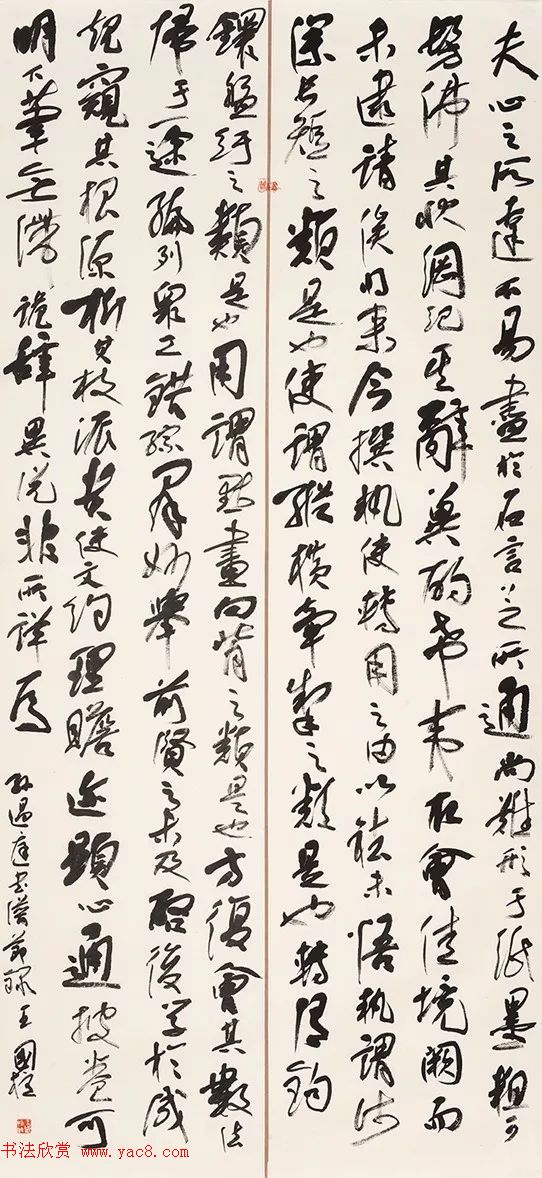 夫心之所達不易盡於名言言之所通尚難形于紙墨粗可
髣髴其狀綱紀其辭冀酌希夷取會佳境闕而
未逮請俟將來今撰執使轉用之由以祛未悟執謂深
淺長短之類是也使謂縱橫牽掣之類是也轉謂鉤
鐶盤紆之類是也用謂點畫向背之類是也方復會其數法
歸于一途編列眾工錯綜群妙舉前賢之未及啓後學於成
規窺其根源析其枝派貴使文約理贍迹顯心通披卷可
明下筆無滯詭辭異說非所詳焉
孫過庭書譜節錄 王國
书法欣赏
www.yac8.com